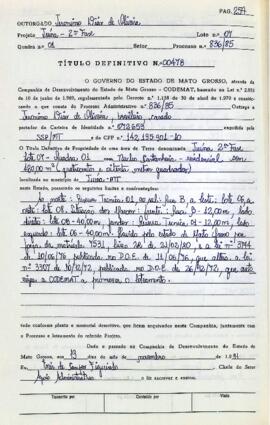 PAG. 257
OUTORGADO Jurandir Dias de Oliveira
Projeto Juína - 2ª Fase Lote nº 07
Quadra nº 01 Setor Processo nº 836/85
TÍTULO DEFINITIVO N. 00478
O GOVERNO DO ESTADO DE MATO GROSSO, através da
Companhia de Desenvolvimento do Estado de Mato Grosso - CODEMAT, baseado na Lei nº 2.831
de 10 de junho de 1969, regulamentado pelo Decreto nº 1.138 de 30 de abril de 1970 e considerando
o que consta do Processo Administrativo nº 836/85
Jurandir Dias de Oliveira, brasileiro, casado
portador da Carteira de Identidade nº 072658 expedida pela
SSP/MT e do CPF nº 142.135.901-10
O Título Definitivo de Propriedade de uma área de Terra denominada Juína 2ª Fase
Lote 07 - Quadra 01 com
480,00 m² (quatrocentos e oitenta metros quadrados)
localizada no município de Juína - MT
neste Estado, possuindo os seguintes limites e confrontações:
ao norte: Reserva Técnica 01, ao sul: Rua B, a leste: lote 06, a
oeste: lote 08. Situação dos Marcos: frente: Rua B - 12,00m, lado
direito: lote 06 - 40,00m, fundos: Reserva Técnica 01 - 12,00m, lado
esquerdo: lote 08 - 40,00m. Havido pelo estado de Mato Grosso por
força da matrícula 4531, livro 2R de 21/02/80 e a lei nº 3744
de 10/06/76 publicada no D.O.E. de 11/06/76, que altera a lei
nº 3307 de 18/12/72, publicada no D.O.E. de 26/12/72, que auto
riza a CODEMAT a promover o loteamento.
tudo conforme planta e memorial descritivo, que ficam arquivados nesta Companhia, juntamente com
o Processo e loteamento do referido Projeto.
Dado e passado na Companhia de Desenvolvimento do Estado de
Mato Grosso, aos 13 dias do mês de novembro de 1991
Eu, Chefe do Setor
Apoio Administrativo o fiz escrever e assino.
TRANSMITENTE CONTRATO OBSERVAÇÃO